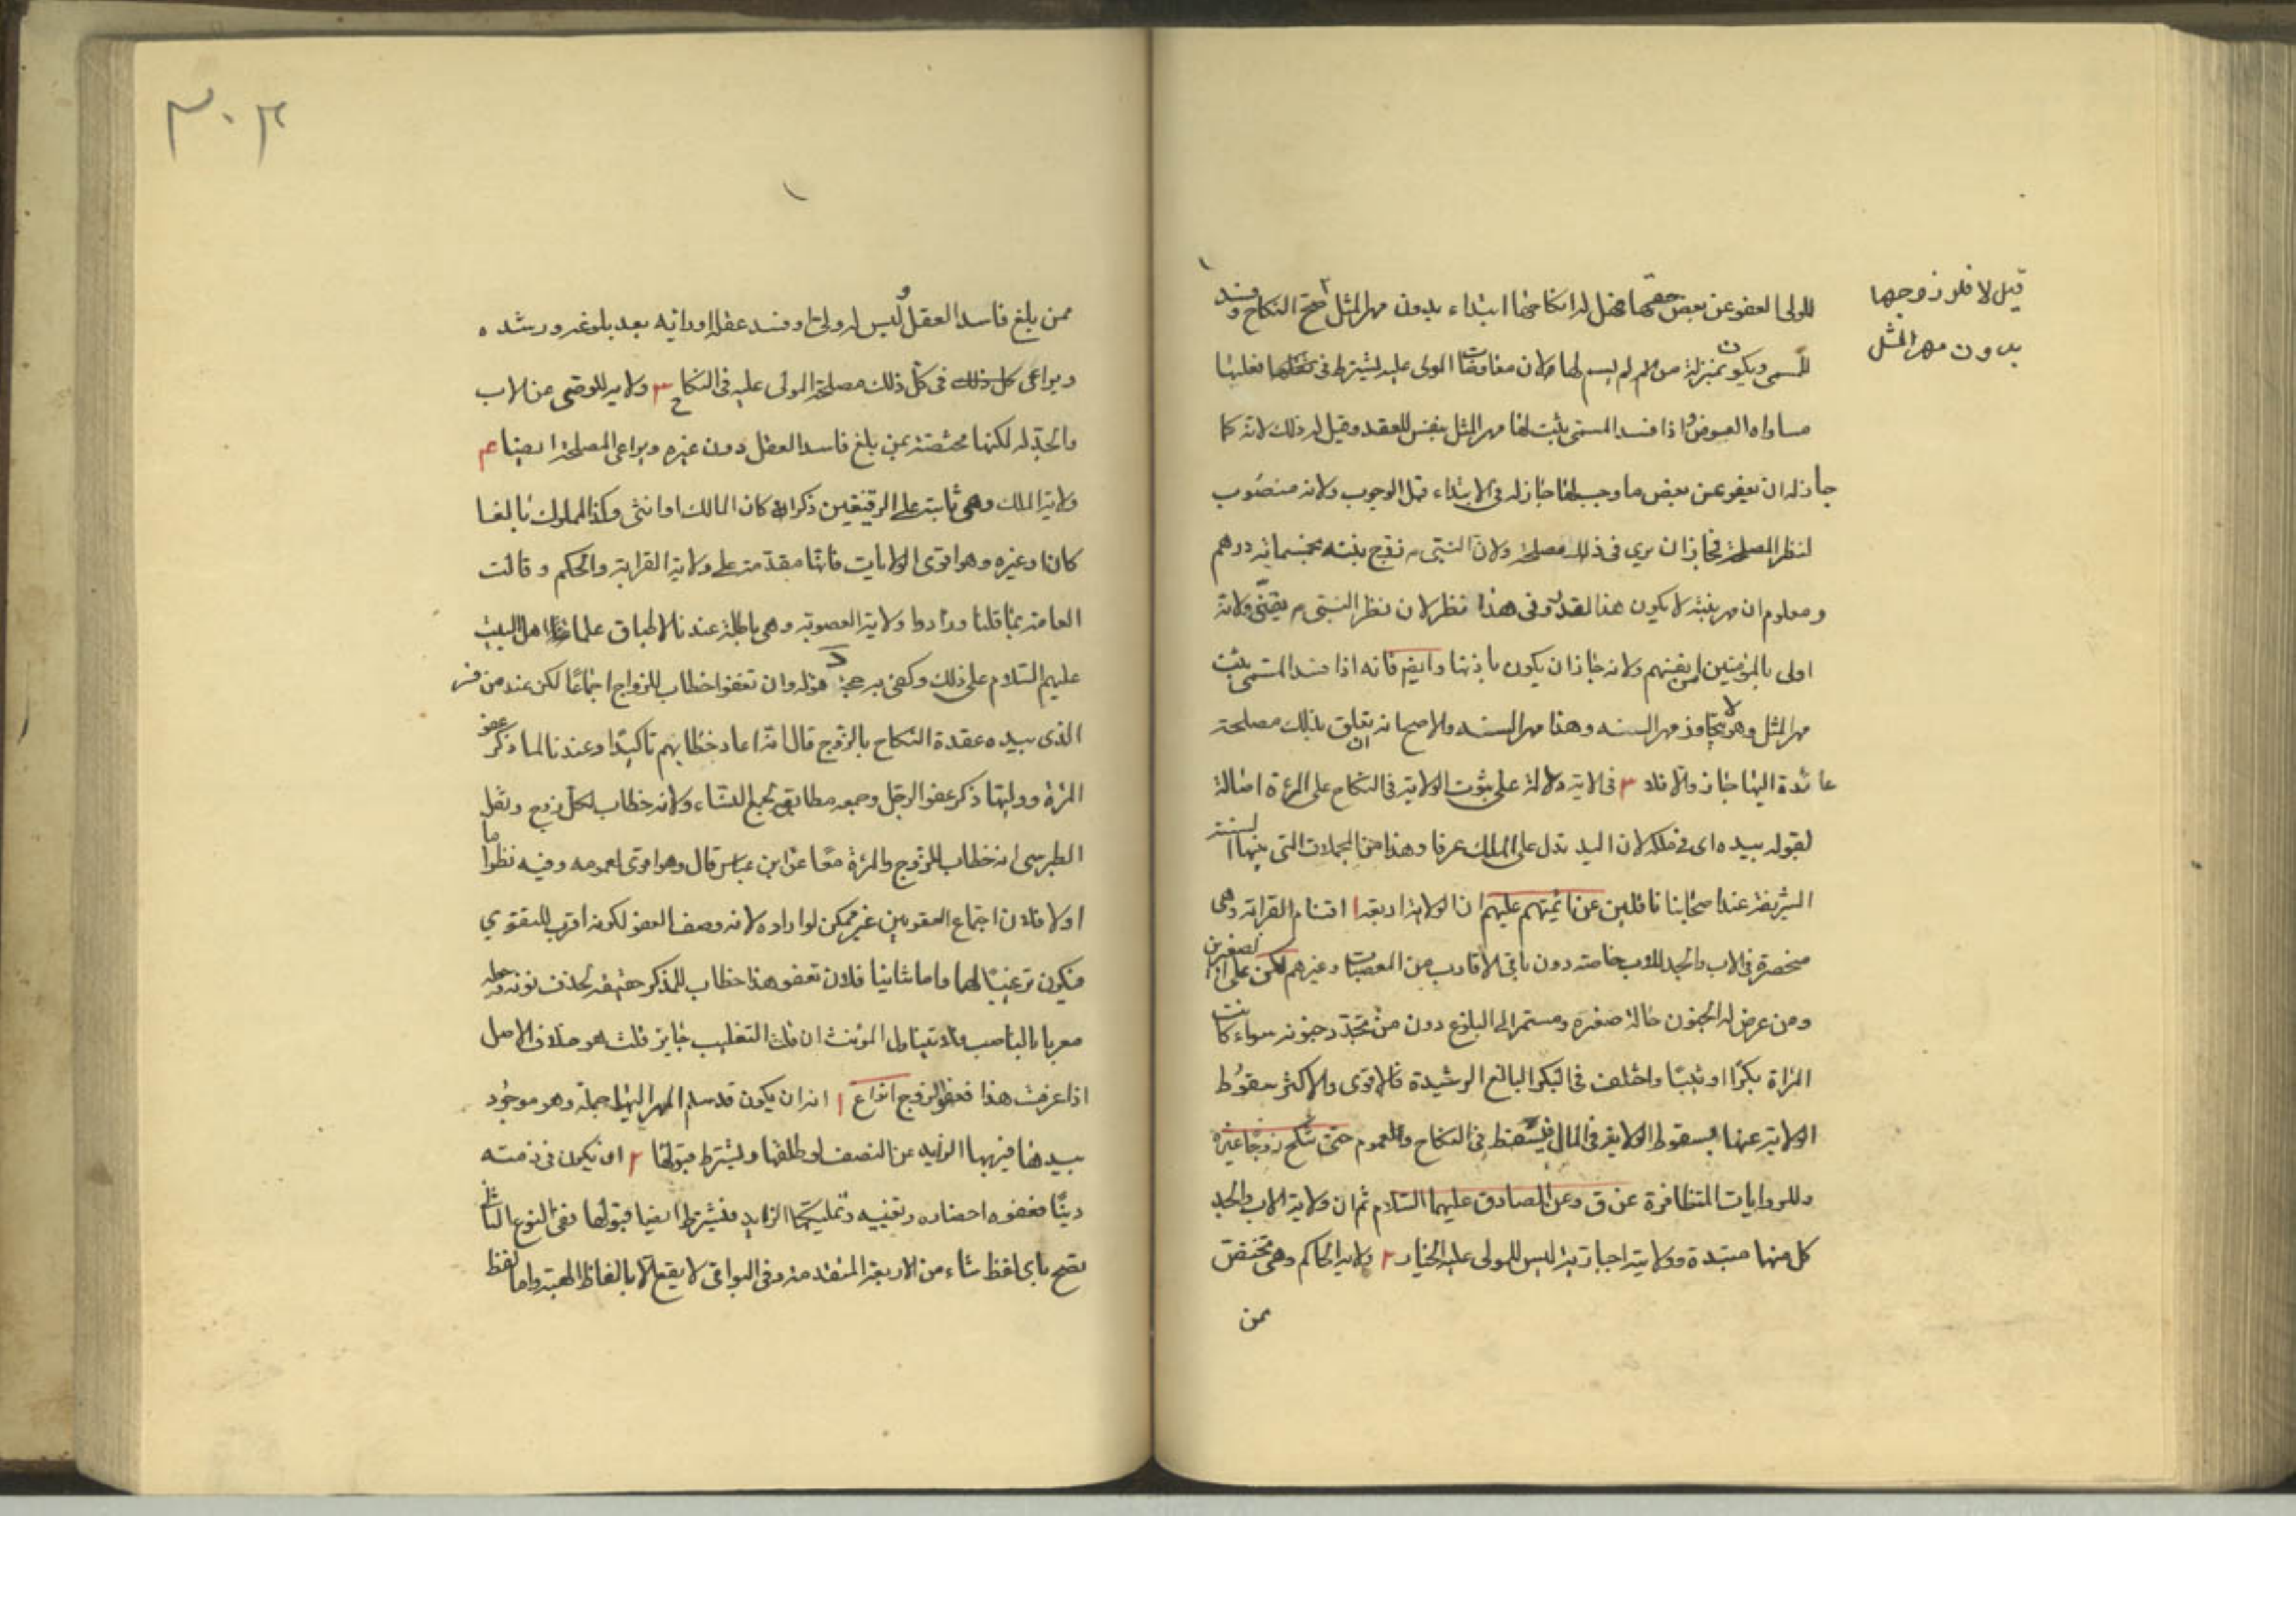 للولى العفو عن بعض حقها فهل له انكاحها ابتداء بدون مهر المثل صح النكاح وفسد
قيل لا فلو زوجها
بدون مهر المثل
المسمى ويكون بمنزلة من لم يسم لها ولان معاوضات المولى عليه يشترط فى فعلها
مساواه العوض واذا فسد المسمى يثبت لها مهر المثل بنفس العقد وقيل له ذلك لانه كما
جاز له ان يعفو عن بعض ما وجب لها جاز له فى الابتداء قبل الوجوب ولانه منصوب
لنظر المصلحة فجاز ان يرى فى ذلك مصلحة ولان النبى م زوج بنته بخمسمائه درهم
ومعلوم ان مهر بنته لا يكون هذا القدر وفى هذا نظر لان نظر النبى م يقينى ولانه
اولى بالمؤمنين من انفسهم ولانه جاز ان يكون باذنها وايضا فانه اذا فسد المسمى يثبت
مهر المثل وهو لا يتجاوز مهر السنه وهذا مهر السنه والاصح انه ان تعلق بذلك مصلحة
عائدة اليها جاز والا فلا ٣ فى الاية دلالة على ثبوت الولاية فى النكاح على المرءة اصالة
لقوله بيده اى فى ملكه لان اليد تدل على الملك عرفا وهذا من المجملات التى بينها السنة
الشريفة عند اصحابنا ناقلين عن ائمتهم عليهم ان الولاية اربعة ا اقسام القرابة وهى
منحصرة فى الاب والجد للاب خاصة دون باقى الاقارب من العصبات وغيرهم لكن على الصغيرين
ومن عرض له الجنون حالة صغره ومستمر الى البلوغ دون من تجدد جنونه سواء كانت
المراة بكرا او ثيبا واختلف فى البكر البالغ الرشيدة فالاقوى والاكثر سقوط
الولاية عنها لسقوط الولاية فى المال فيسقط فى النكاح وللعموم حتى تنكح زوجا غيره
وللروايات المتظافرة عن ق وعن الصادق عليهما السلام ثم ان ولاية الاب والجد
كل منها مستبدة وولاية اجبارية ليس للمولى عليه الخيار ٢ ولاية الحاكم وهى تختص
بمن
٣٠٢
ممن بلغ فاسد العقل وليس له ولى او فسد عقله اورايه بعد بلوغه ورشده
ويراعى كل ذلك فى كل ذلك مصلحة المولى عليه فى النكاح ٣ ولاية للوصى عن الاب
والجد له لكنها مختصة بمن بلغ فاسد العقل دون غيره ويراعى المصلحة ايضا ٤
ولاية الملك وهى ثابتة على الرقيقين ذكرا كان المالك او انثى وكذا المملوك بالغا
كان او غيره وهو اقوى الولايات فانها مقدمة على ولاية القرابة والحكم وقالت
العامة بما قلنا وزادوا ولاية العصوبة وهى باطلة عندنا لاطباق علماء اهل البيت
عليهم السلام على ذلك وكفى به حجة قوله وان تعفوا خطاب للزواج اجماعا لكن عند من فسر
الذى بيده عقدة النكاح بالزوج قال انه اعاد خطابهم تاكيدا وعندنا لما ذكر عفو
المرءة ووليها ذكر عفو الرجل وجمعه مطابقة لجمع النساء ولانه خطاب لكل زوج ونقل
الطبرسى انه خطاب للزوج والمرءة معا عن ابن عباس قال وهو اقوى لعمومه وفيه نظر اما
اولا فلان اجتماع العفوين غير ممكن لو اراده لانه وصف العفو لكونه اقرب للتقوي
فيكون ترغيبا لهما واما ثانيا فلان تعفو هذا خطاب للمذكر حقيقه لحذف نونه
معربا بالناصب فلا يتناول المؤنث ان قلت التغليب جايز قلت هو خلاف الاصل
اذا عرفت هذا فعفو الزوج انواع ا انه ان يكون قد سلم المهر اليها جملة وهو موجود
بيدها فيهبها الزايد عن النصف لو طلقها ويشترط قبولها ٢ ان يكون فى ذمته
دينا فعفوه احضاره وتعيينه وتمليكها الزايد فيشترط ايضا قبولها ففى النوع الثانى
يصح باى لفظ شاء من الاربعة المتقدمة وفى البواقى لا يقع الا بالفاظ الهبة واما لفظ